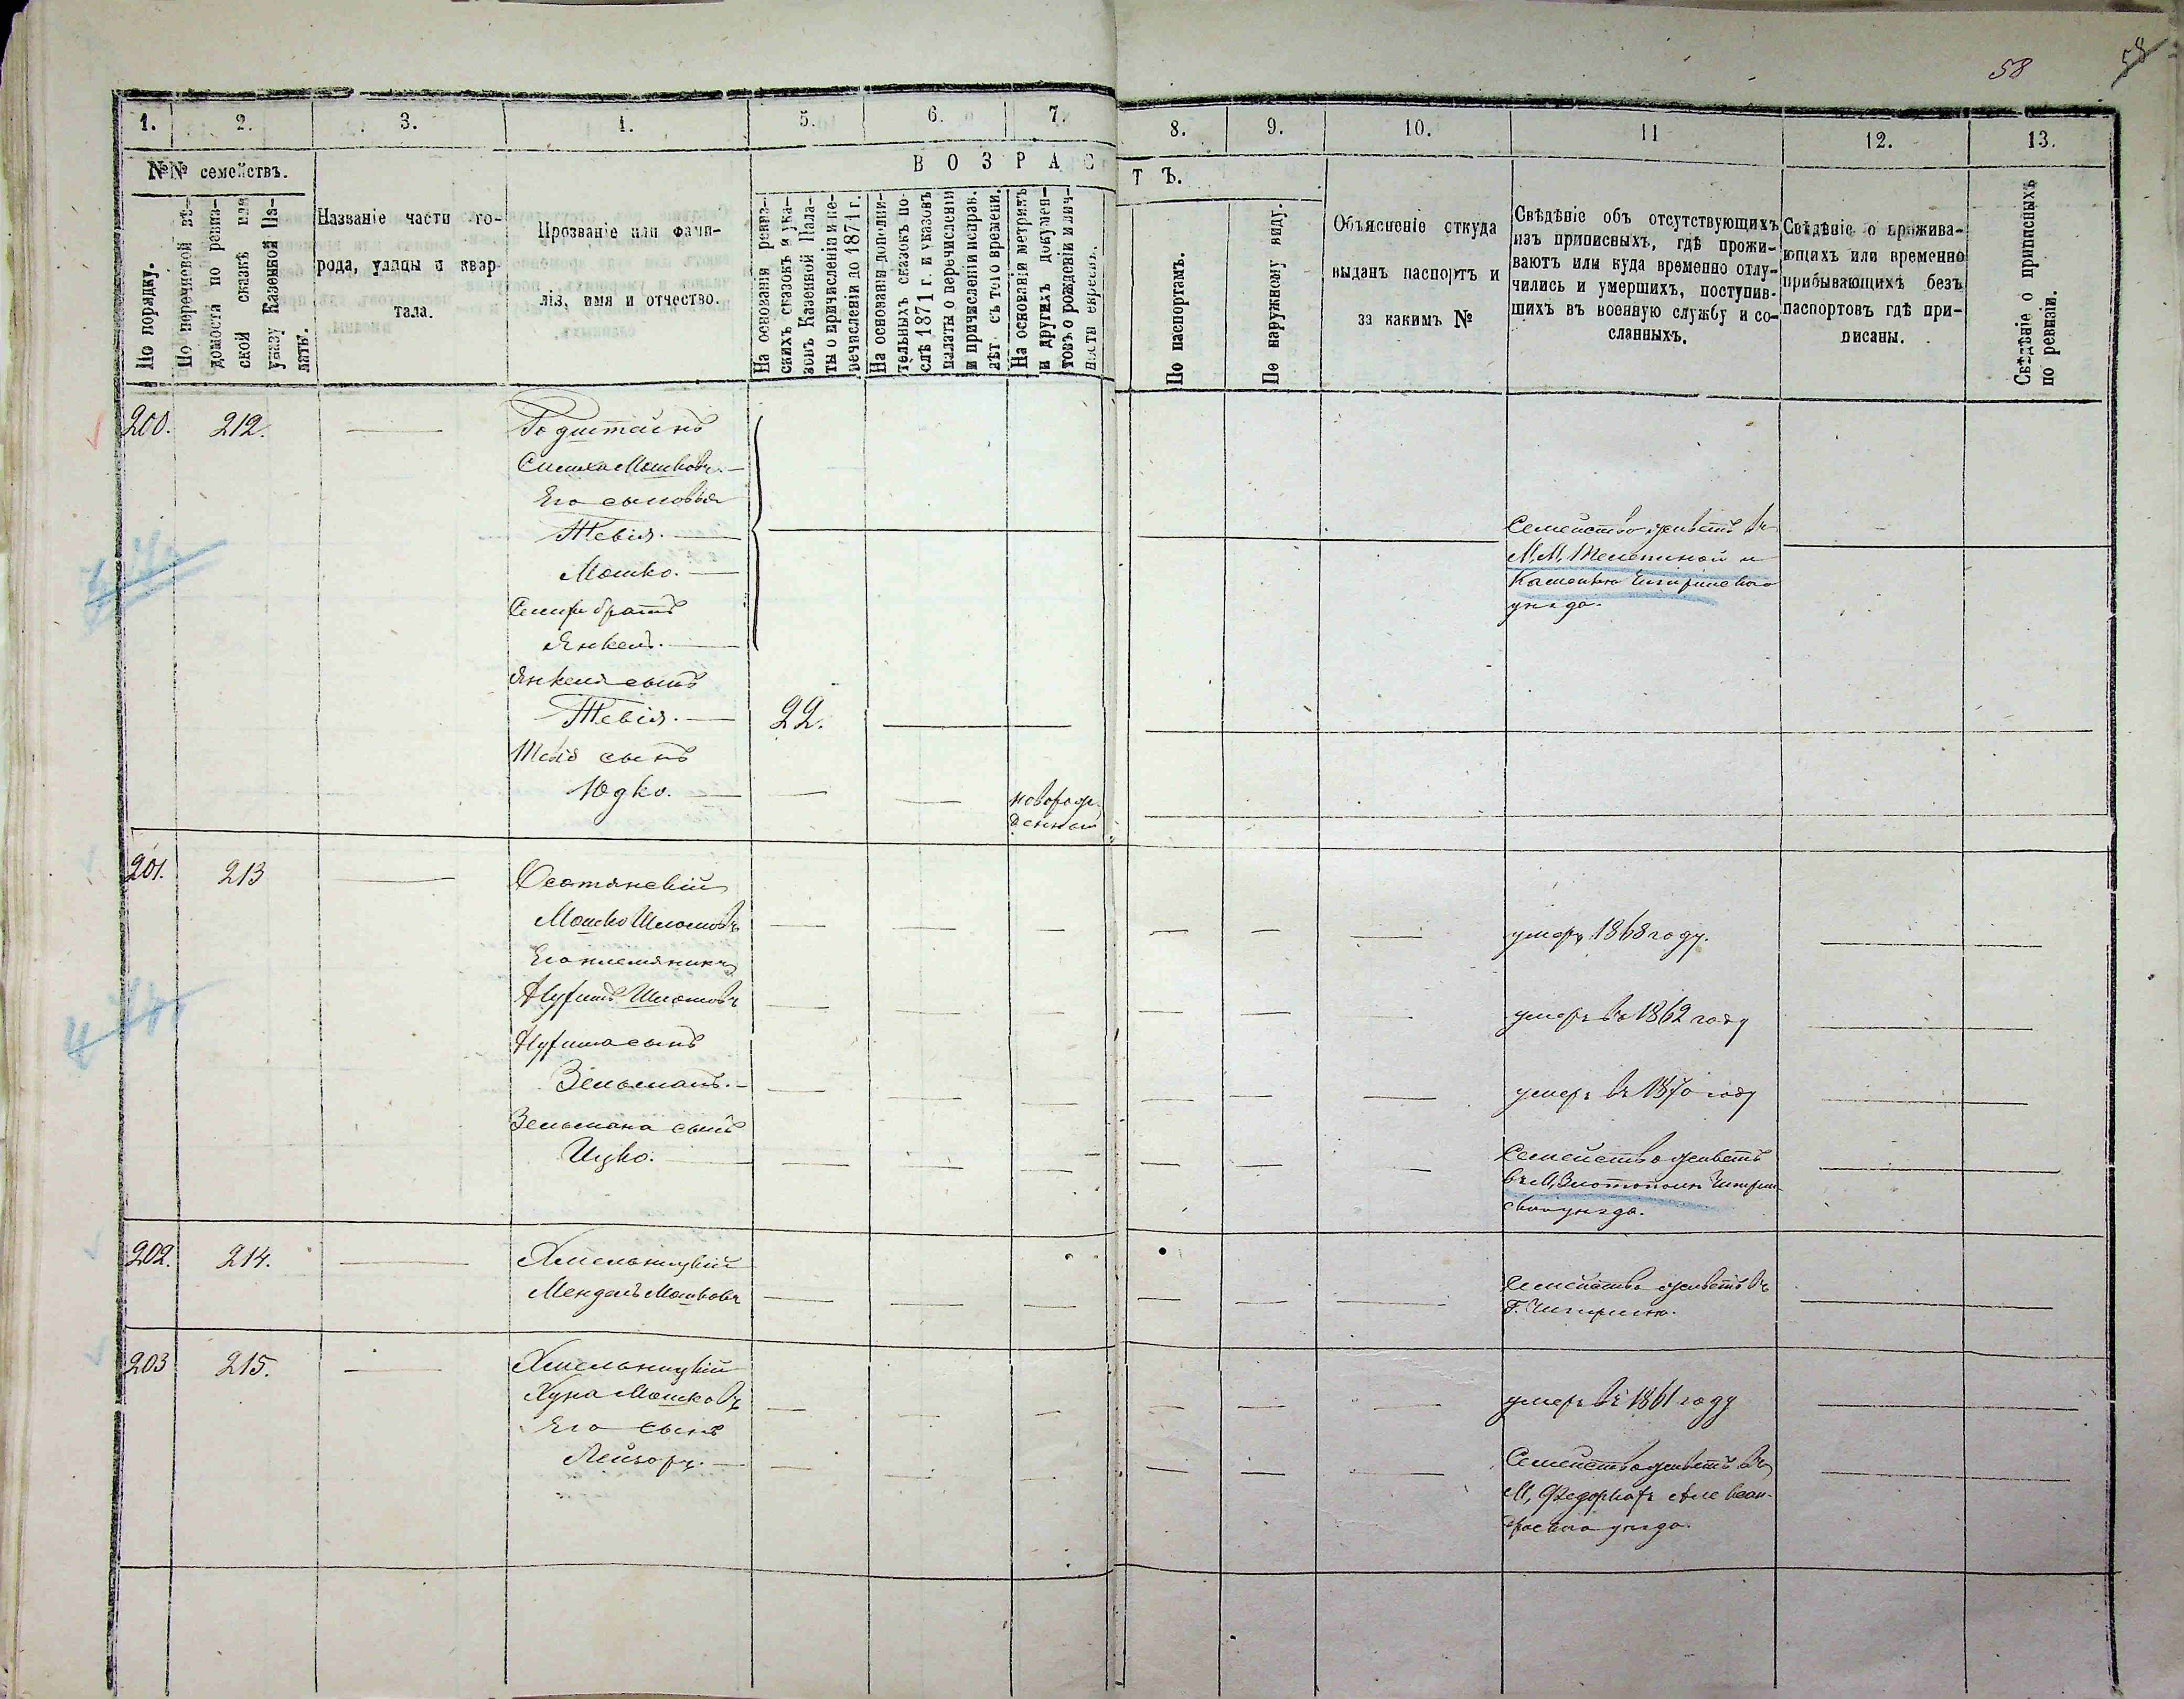 58
1. 2. 3. 4. 5. 6. 7. 8. 9. 10. 11 12. 13.
№№ семействъ.
ВОЗРАСТЪ.
По порядку.
По перечневой вѣ-
домости по ревиз-
ской сказкѣ или
указу Казенной Па-
латы.
Названіе части го-
рода, улицы и квар-
тала.
Прозваніе или фами-
лія, имя и отчество.
На основаніи ревиз-
скихъ сказокъ и ука-
зовъ Казенной Пала-
ты о причисленіи и пе-
речисленіи до 1871 г.
На основаніи дополни-
тельныхъ сказокъ по-
слѣ 1871 г. и указовъ
палаты о перечисленіи
и причисленіи исправ.
лѣт. съ того времени.
На основаніи метрикъ
и другихъ докумен-
товъ о рожденіи и лич-
ности евреевъ.
По паспортамъ.
По наружному виду.
Объясненіе откуда
выданъ паспортъ и
за какимъ №
Свѣдѣніе объ отсутствующихъ
изъ приписныхъ, гдѣ прожи-
ваютъ или куда временно отлу-
чились и умершихъ, поступив-
шихъ въ военную службу и со-
сланныхъ.
Свѣдѣніе о прожива-
ющихъ или временно
прибывающихъ безъ
паспортовъ гдѣ при-
писаны.
Свѣдѣніе о приписныхъ
по ревизіи.
200. 212.
Симха Мошковъ.
Его сыновья
Тевія.
Мошко.
Симхи братъ
Янкель.
Янкеля сынъ
Тевія. 22.
Тевія сынъ
Юдко. новорож-
денный
Семейство живетъ въ
М.М. Телепиной и
Каменкѣ Чигиринскаго
уѣзда.
201. 213
Мошко Шломовъ умеръ 1868 году.
Его племянникъ
Нухимъ Шломовъ умеръ въ 1862 году
Нухима сынъ
Зельманъ. умеръ въ 1870 году
Зельмана сынъ
Ицко. Семейство живетъ
въ М. Златополѣ Чигирин-
скаго уѣзда.
202. 214. Хмельницкій
Мендель Мошковъ Семейство живетъ въ
Г. Чигиринѣ.
203 215. Хмельницкій
Хуна Мошковъ умеръ въ 1861 году
Его сынъ
Лейзоръ. Семейство живетъ въ
М. Федоркахъ Алексан-
дрійскаго уѣзда.